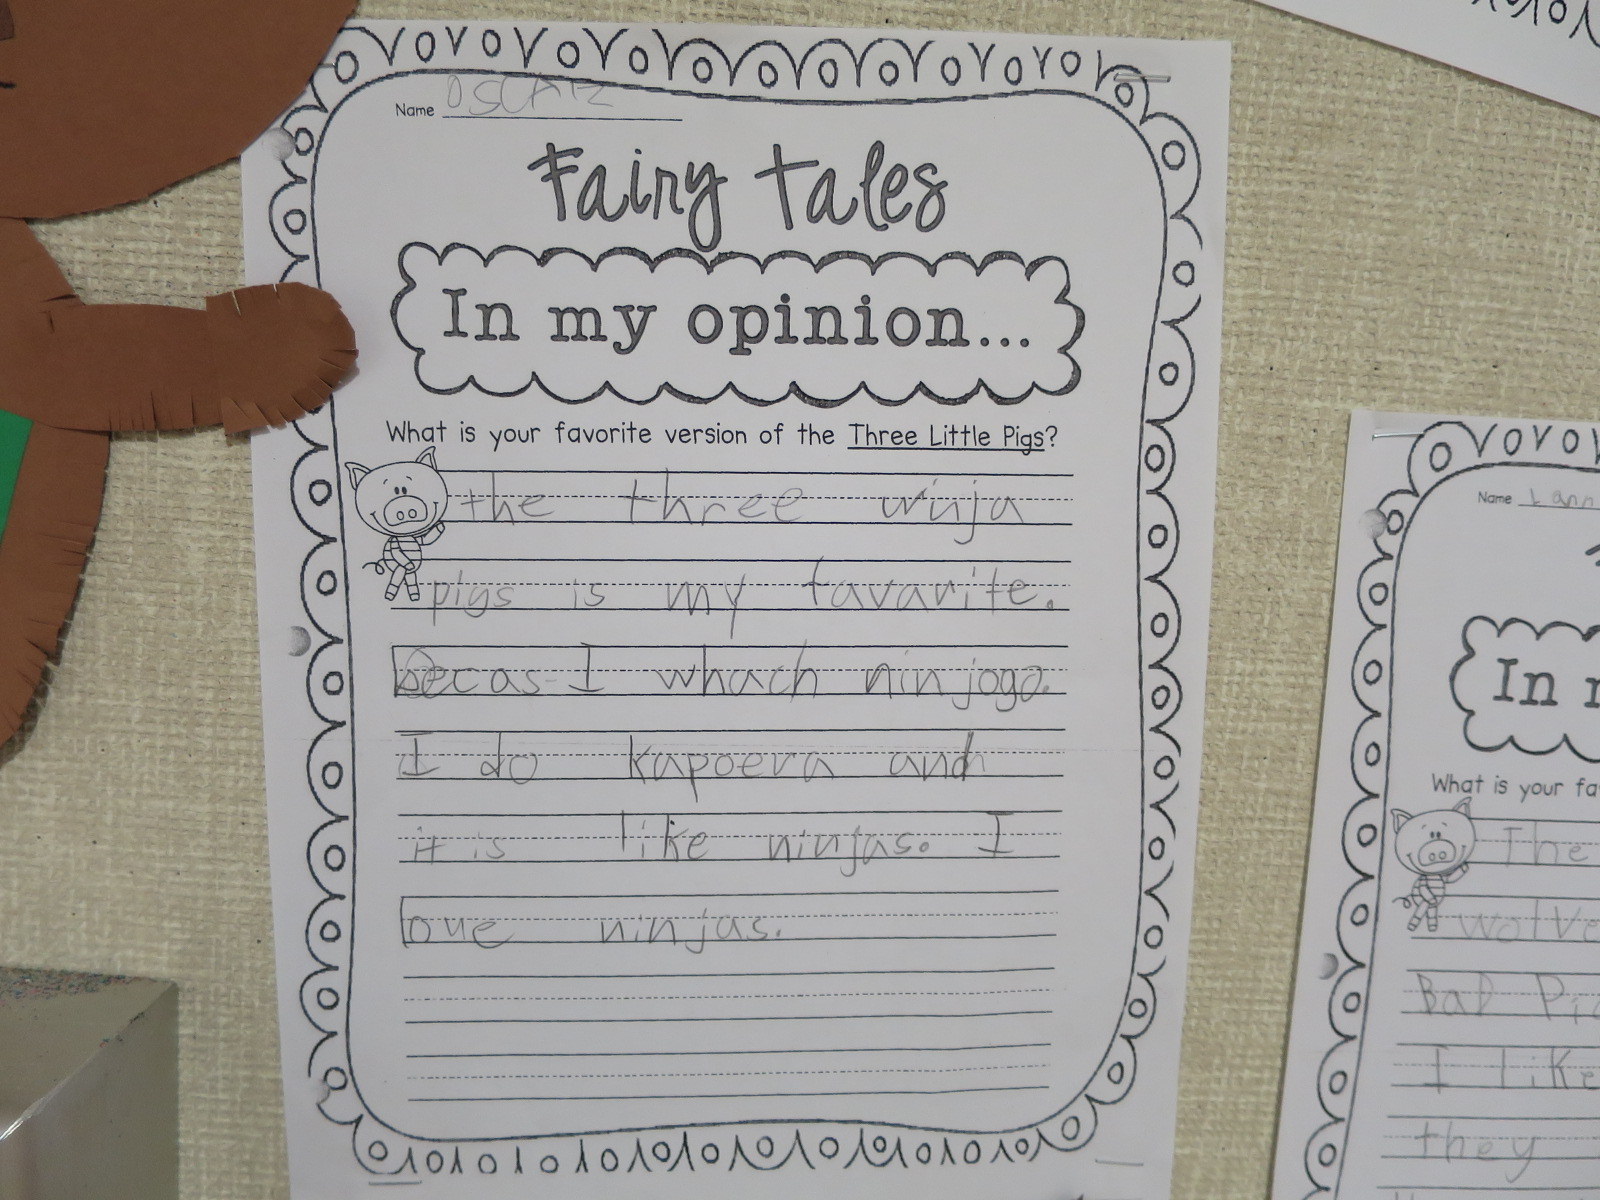 Name OSCAR
Fairy Tales
In my opinion...
What is your favorite version of the Three Little Pigs?
the three ninja
pigs is my favarite.
Becas I whach ninjogo.
I do kapoera and
it is like ninjas. I
love ninjas.
Name
In
What is your
The
wolve
Bad
I like
they